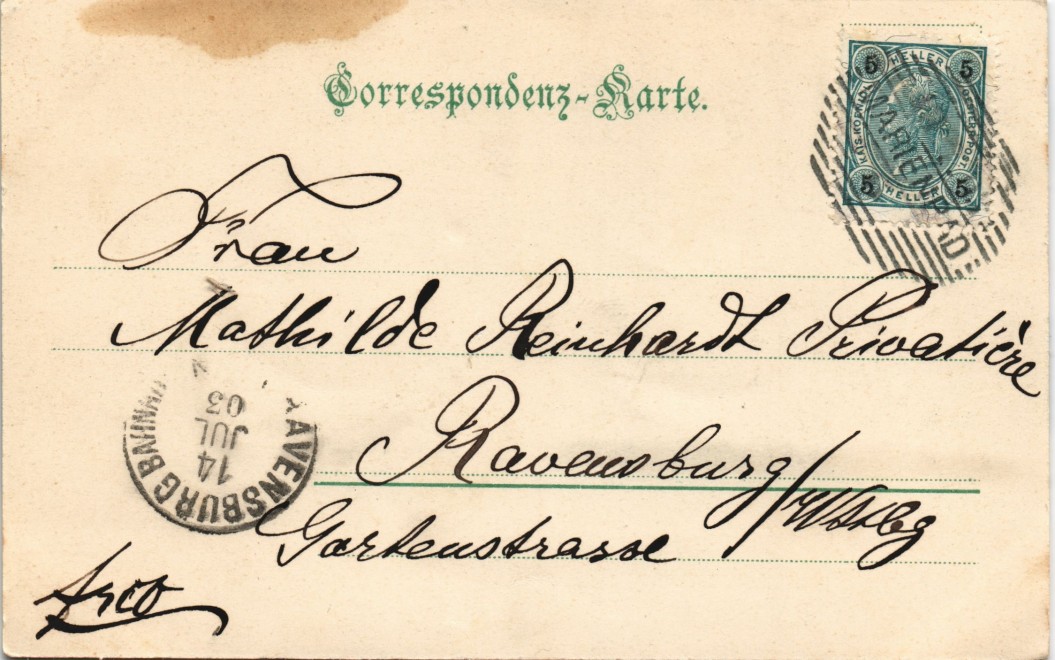 Correspondenz-Karte.
5 HELLER 5
KAIS. KÖNIGL.
ÖSTERR. POST.
5 HELLER 5
MARIENBAD
Frau
Mathilde Reinhardt Privatière
Ravensburg/Wttbg
Gartenstrasse
RAVENSBURG BAHNH
14
JUL
03